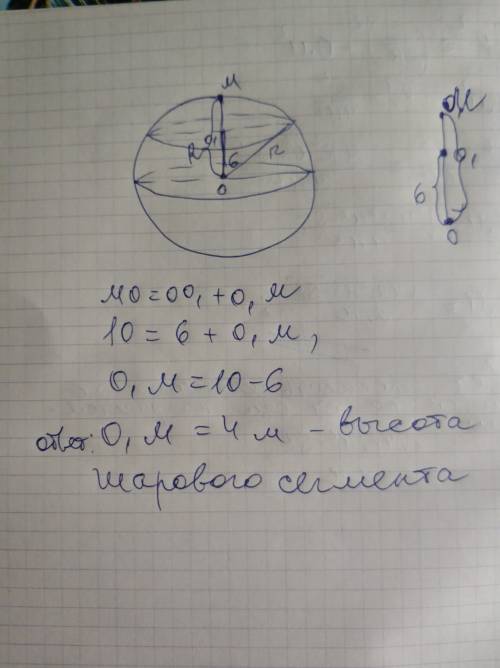 M
O₁
R
6
R
O
M
O₁
6
O
MO = OO₁ + O₁M
10 = 6 + O₁M,
O₁M = 10 - 6
ответ: O₁M = 4 м – высота
шарового сегмента